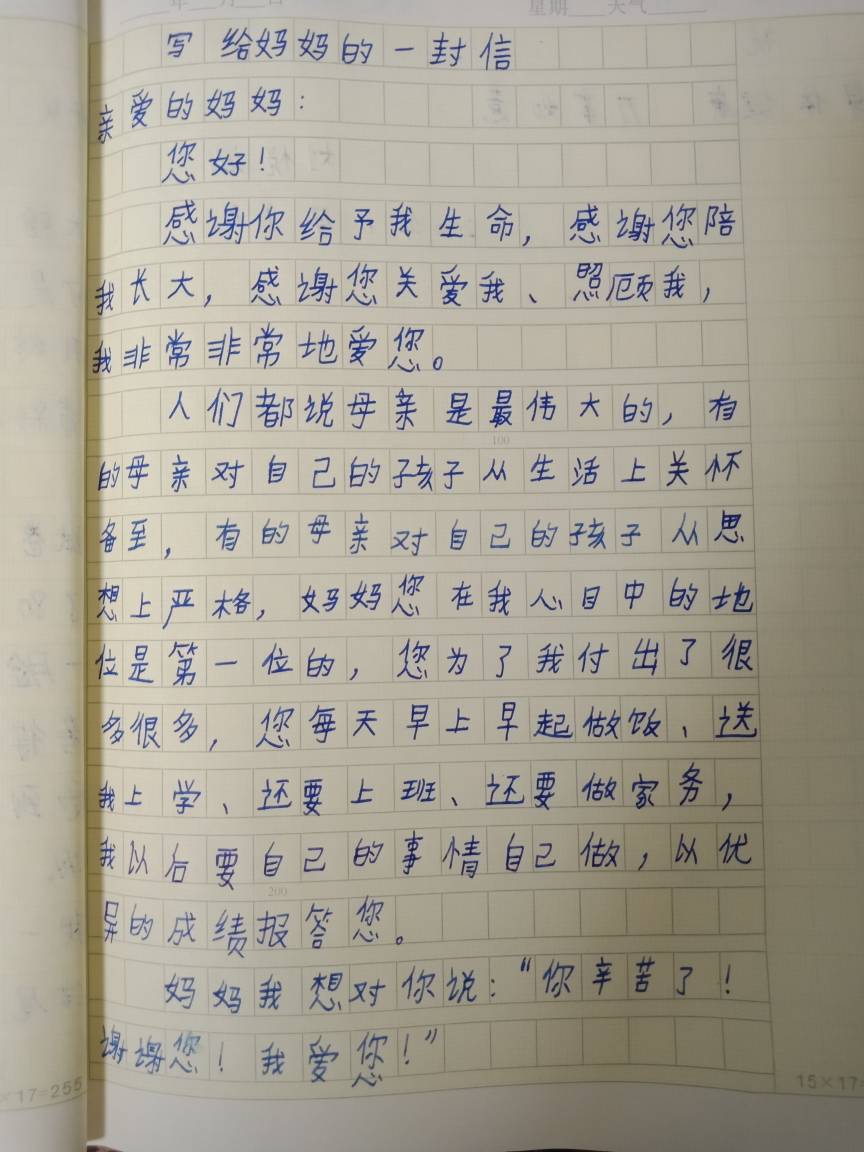 年 月 日 星期 天气
写给妈妈的一封信
亲爱的妈妈：
您好！
感谢你给予我生命，感谢您陪
我长大，感谢您关爱我、照顾我，
我非常非常地爱您。
人们都说母亲是最伟大的，有
100
的母亲对自己的孩子从生活上关怀
备至，有的母亲对自己的孩子从思
想上严格，妈妈您在我心目中的地
位是第一位的，您为了我付出了很
多很多，您每天早上早起做饭、送
我上学、还要上班、还要做家务，
我以后要自己的事情自己做，以优
200
异的成绩报答您。
妈妈我想对你说：“你辛苦了！
谢谢您！我爱您！”
×17=255
15×17=